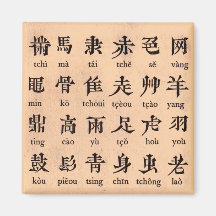 黹 馬 隶 赤 色 网
tchì mà tái tchě sě vàng
黽 骨 隹 走 艸 羊
mìn kŏ tchoūi tçèou tçào yang
鼎 高 雨 足 虍 羽
tìng cāo yù tçŏ hoū yù
鼓 髟 青 身 虫 老
kòu piēou tsing chīn tchông laò